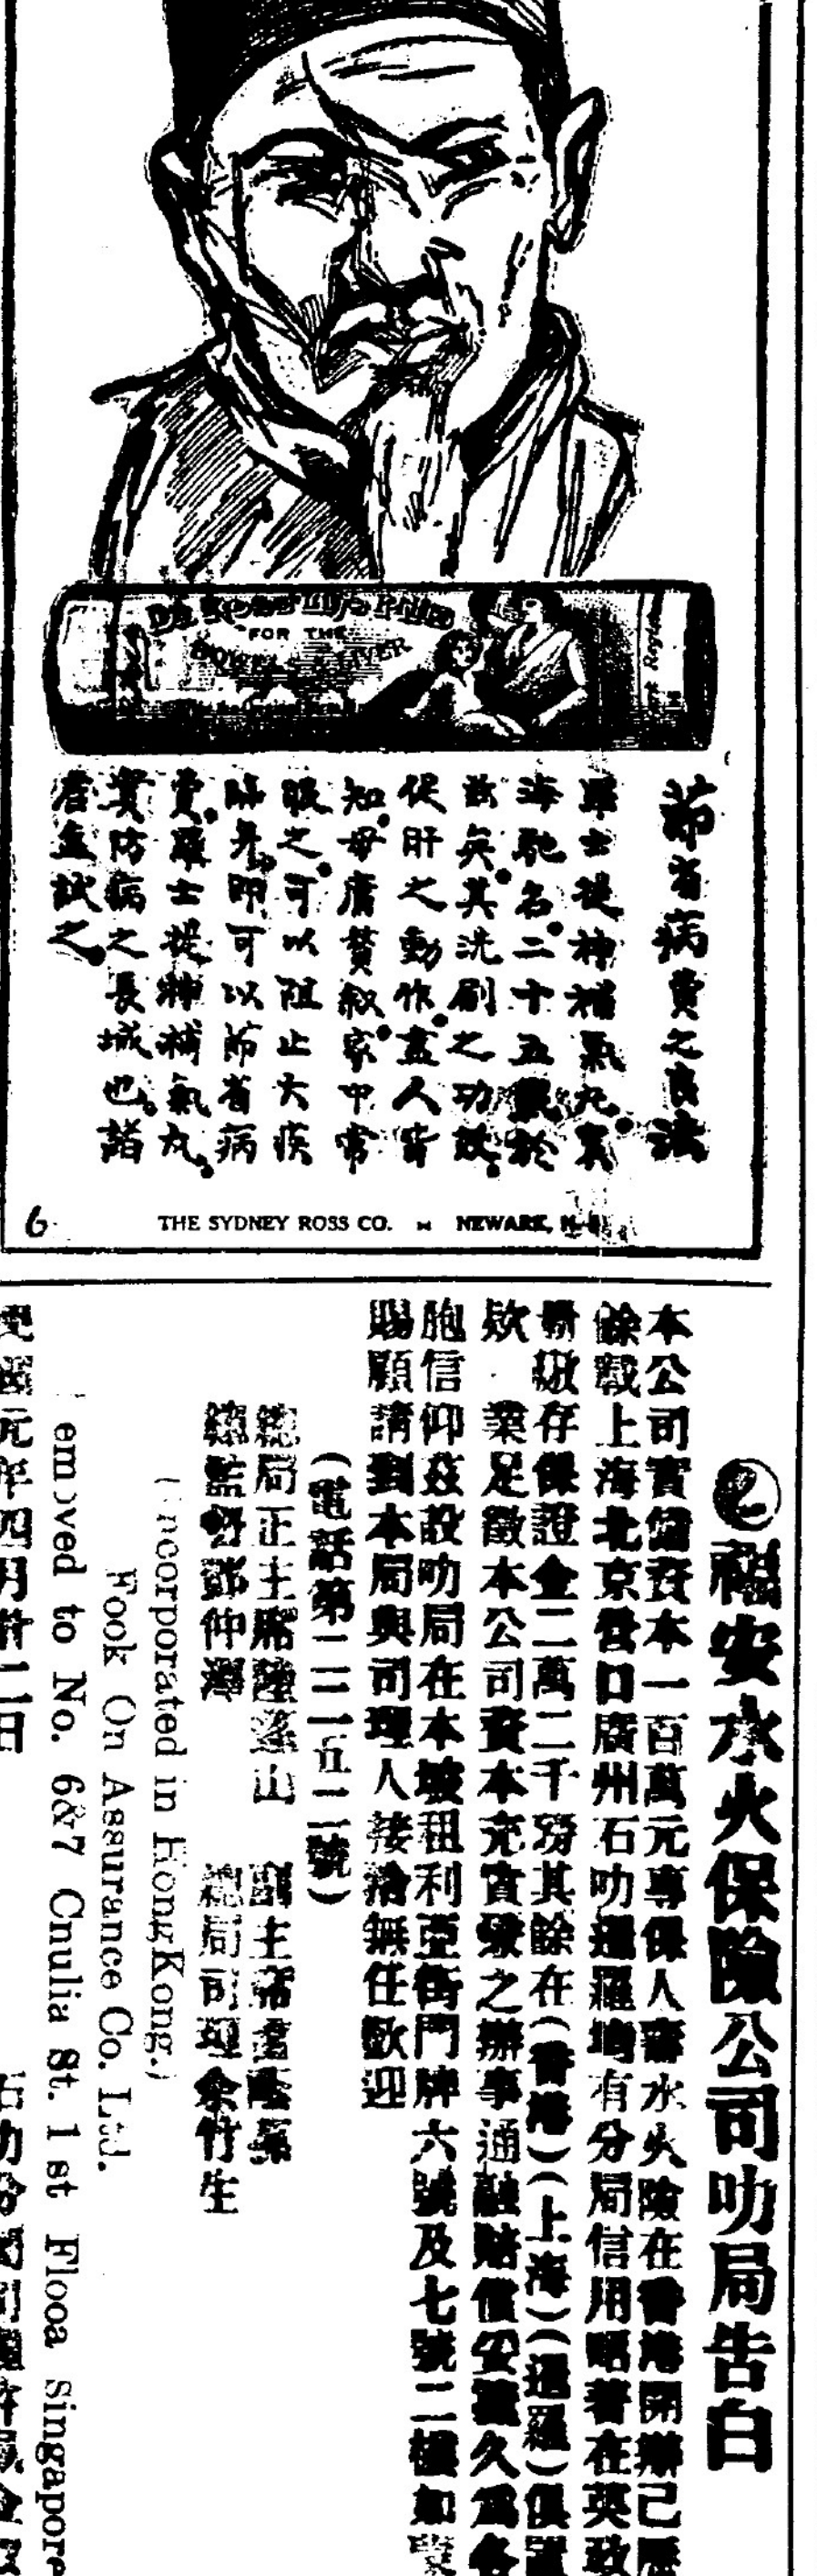 FOR THE
節省病費之良法
羅士提神補氣丸實
海馳名二十五載於
茲矣其洗刷之功效
促肝之動作盡人皆
知毋庸贅叙家中常
服之可以阻止大疾
臨身即可以節省病
費羅士提神補氣丸
實防病之長城也諸
君盍試之
6
THE SYDNEY ROSS CO. NEWARK,
福安水火保險公司叻局告白
本公司實備資本一百萬元專保人壽水火險在香港開辦已歷
餘載上海北京營口廣州石叻暹羅埠有分局信用昭著在英政
存保證金二萬二千磅其餘在(香港)(上海)(暹羅)俱置
業足徵本公司資本充實聚之辦事通融賠償妥靈久為各
胞信仰茲設叻局在本坡租利亞街門牌六號及七號二樓如蒙
賜顧請到本局與司理人接洽無任歡迎
(電話第二二一五二號)
總局正主席陸蓬山 副主席
總監督鄧仲澤 總局司理余竹生
(Incorporated in HongKong.)
Fook On Assurance Co. Ltd.
emoved to No. 6&7 Cnulia St. 1 st Flooa Singapore
元年四月廿二日